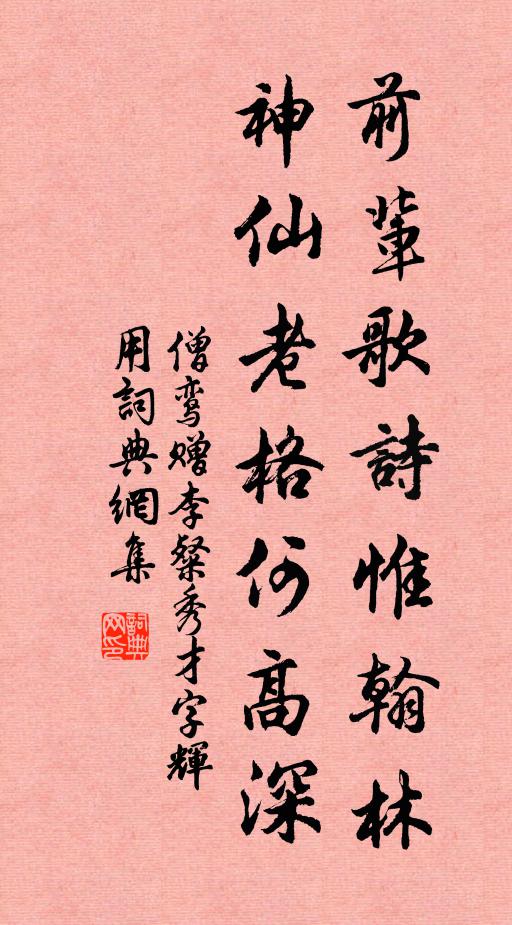 前輩歌詩惟翰林
神仙老格何高深
僧鸾赠李粲秀才字輝
用詞典網集
詞典网印